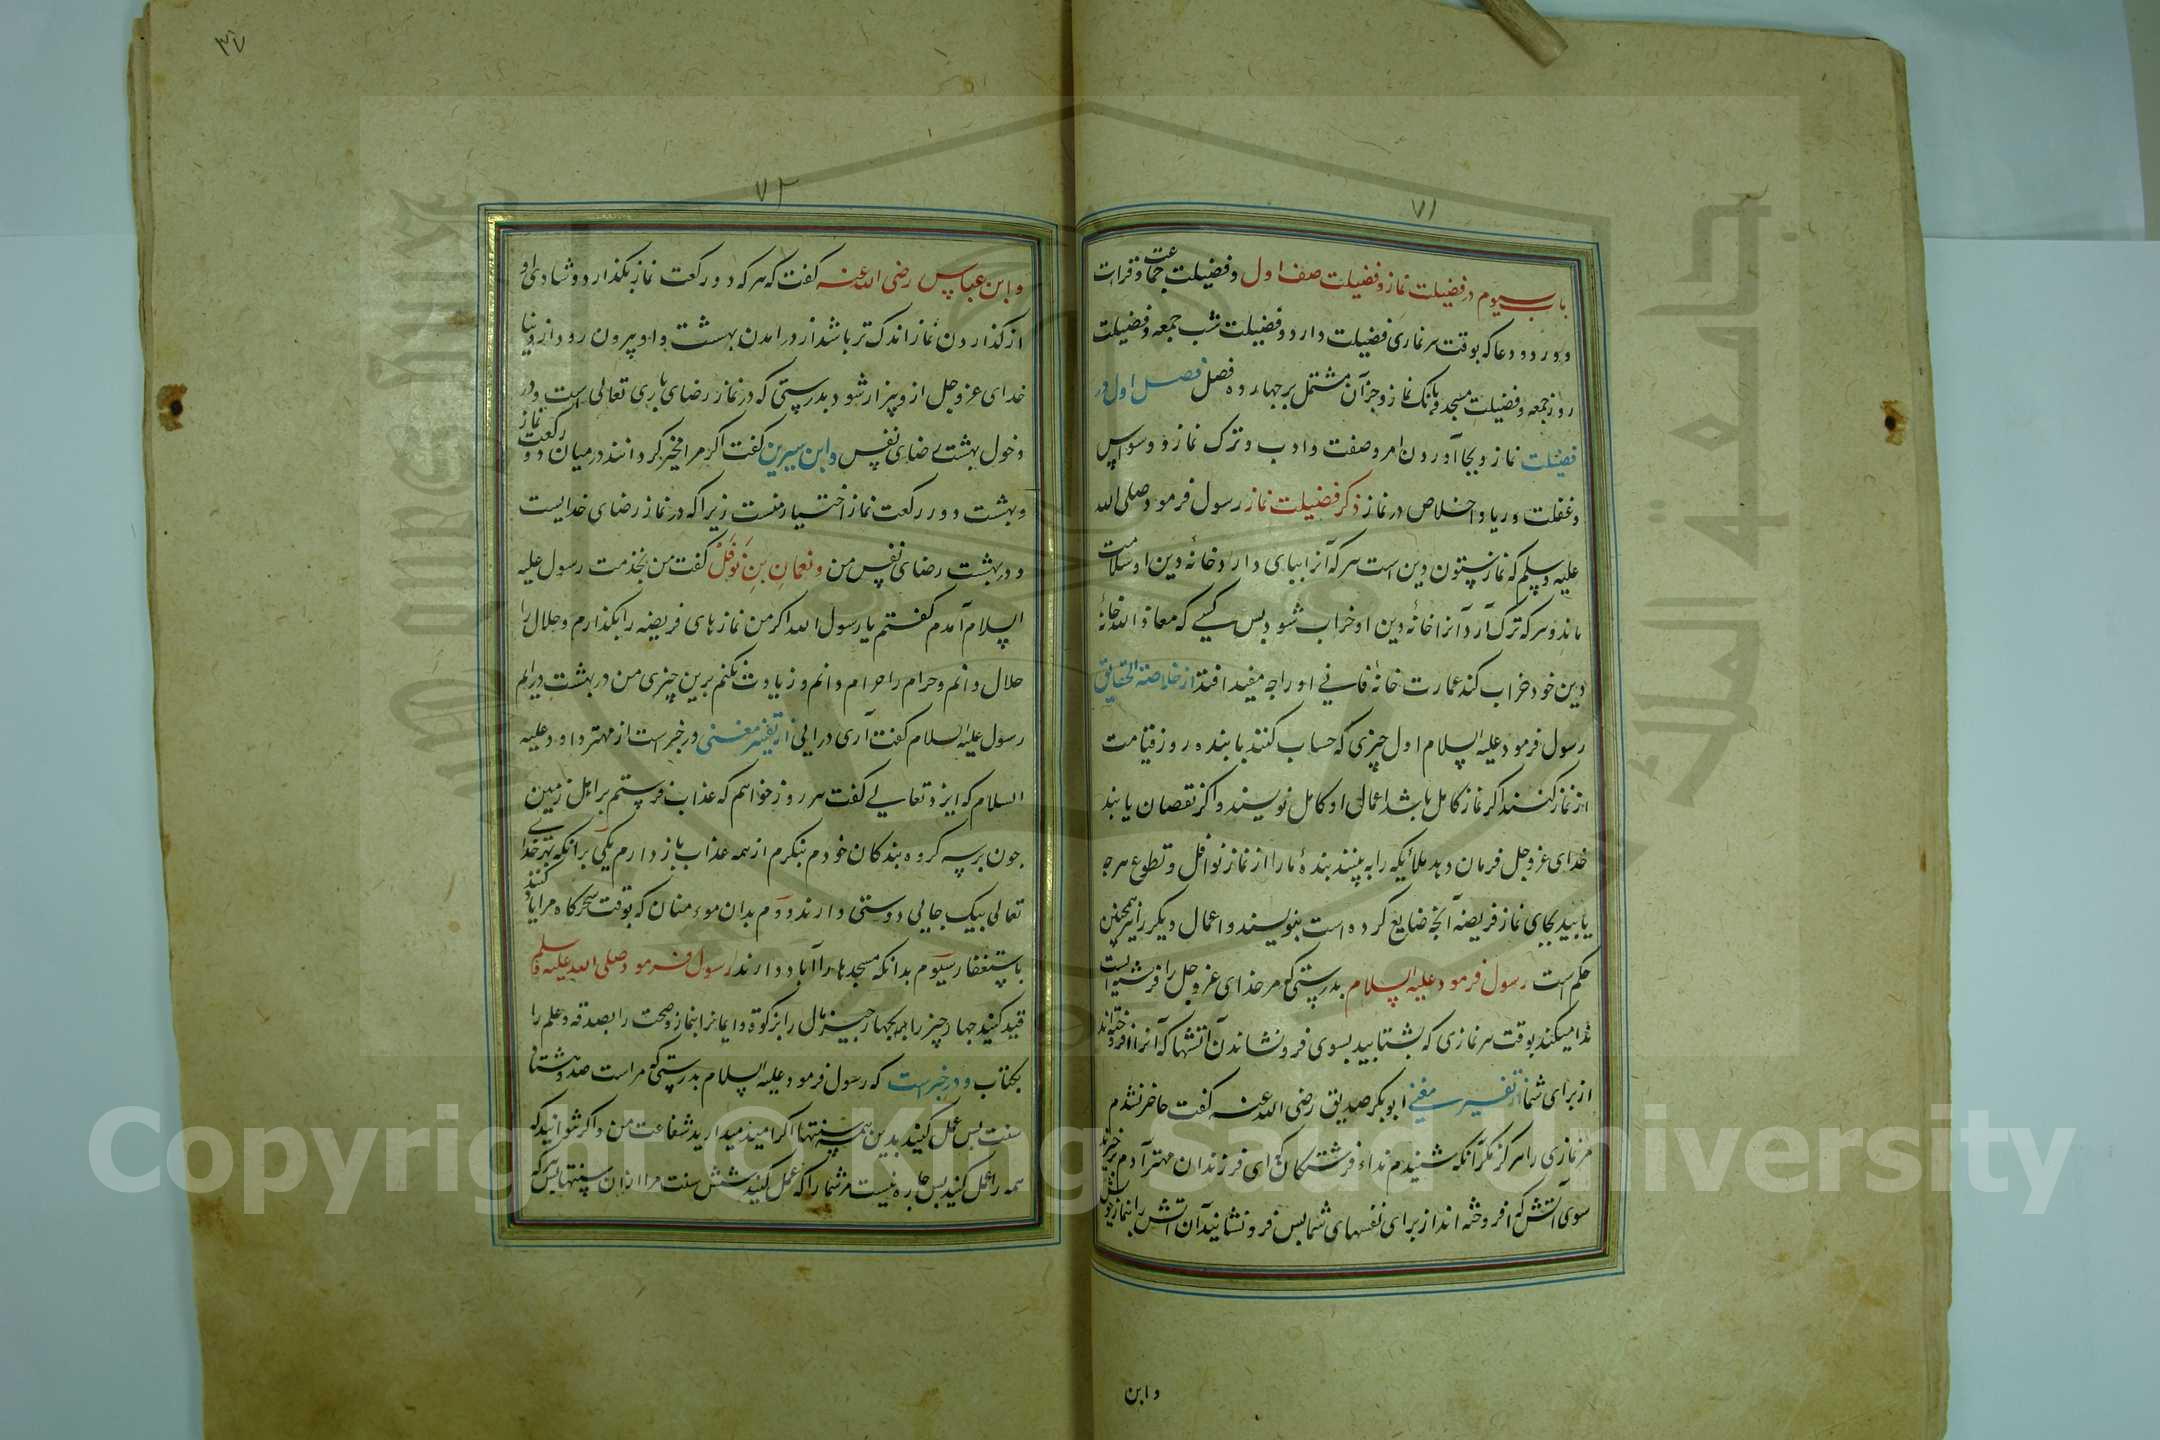 ۷۱
باب سیوم در فضیلت نماز و فضیلت صف اول و فضیلت جماعت و قرات
و ورد و دعا که بوقت هر نمازی فضیلت دارد و فضیلت شب جمعه و فضیلت
روز جمعه و فضیلت مسجد و بانک نماز و جز آن مشتمل بر چهارده فصل فصل اول در
فضیلت نماز و بجا آوردن امر و صفت و ادب و ترک نماز و وسواس
و غفلت و ریا و اخلاص در نماز ذکر فضیلت نماز رسول فرمود صلی الله
علیه وسلم که نماز ستون دین است هر که آنرا بپای دارد خانه دین او سلامت
ماند و هر که ترک آرد آنرا خانه دین او خراب شود بس کسی که معاذ الله خانه
دین خود خراب کند عمارت خانه فانی او را چه مفید افتد از خلاصة الحقایق
رسول فرمود علیه السلام اول چیزی که حساب کنند با بنده روز قیامت
از نماز کنند اکر نماز کامل باشد اعمال او کامل نویسند و اکر نقصان یابند
خدای عز وجل فرمان دهد ملائکه را به بینند بنده ما را از نماز نوافل و تطوع هرچه
یابید بجای نماز فریضه آنچه ضایع کرده است بنویسند و اعمال دیکر را نیز همچنین
حکم است رسول فرمود علیه السلام بدرستی که مر خدای عز وجل را فرشته ایست
ندا میکند بوقت هر نمازی که بشتابید بسوی فرو نشاندن آتشها که آنرا افروخته اند
از برای شما از تفسیر مغنی ابوبکر صدیق رضی الله عنه کفت حاضر نشدم
مر نمازی را هرکز مکر آنکه شنیدم نداء فرشتکان که ای فرزندان مهتر آدم برخیزید
سوی آتش که افروخته اند از برای نفسهای شما بس فرو نشانید آن آتش را بنماز خویش
و ابن
۳۷
۷۲
و ابن عباس رضی الله عنه کفت که هر که دو رکعت نماز بکذارد و شادی او
از کذاردن نماز اندک تر باشد از در آمدن بهشت و او بیرون رود از دنیا
خدای عز وجل از و بیزار شود بدرستی که در نماز رضای باری تعالی است و در
دخول بهشت رضای نفس و ابن سیرین کفت اکر مرا مخیر کردانند در میان دو رکعت نماز
و بهشت دو رکعت نماز اختیار منست زیرا که در نماز رضای خدایست
و در بهشت رضای نفس من و نعمان بن نوفل کفت من بخدمت رسول علیه
السلام آمدم کفتم یا رسول الله اکر من نمازهای فریضه را بکذارم و حلال را
حلال دانم و حرام را حرام دانم و زیادت نکنم برین چیزی من در بهشت درایم
رسول علیه السلام کفت آری درایی از تفسیر مغنی در خبر است از مهتر داود علیه
السلام که ایزد تعالی کفت هر روز خواهم که عذاب فرستم بر اهل زمین
چون بر سه کروه بندکان خودم بنکرم از همه عذاب باز دارم یکی بر آنکه بهر خدای
تعالی بیک جایی دوستی دارند دوم بدان مومنان که بوقت سحرکاه مرا یاد کنند
باستغفار سیوم بدانکه مسجدها را آباد دارند رسول فرمود صلی الله علیه وسلم
قید کنید چهار چیز را بچهار چیز مال را بزکوة و ایمانرا بنماز و صحت را بصدقه و علم را
بکتاب و در خبر است که رسول فرمود علیه السلام بدرستی که مراست صد و هشتاد
سنت بس عمل کنید بدین همه سنتها اکر امید میدارید شفاعت من و اکر نتوانید که
همه را عمل کنید بس چاره نیست مر شما را که عمل کنید شش سنت مرا ازان سنتها بس هر که
Copyright © King Saud University
جامعة الملك سعود